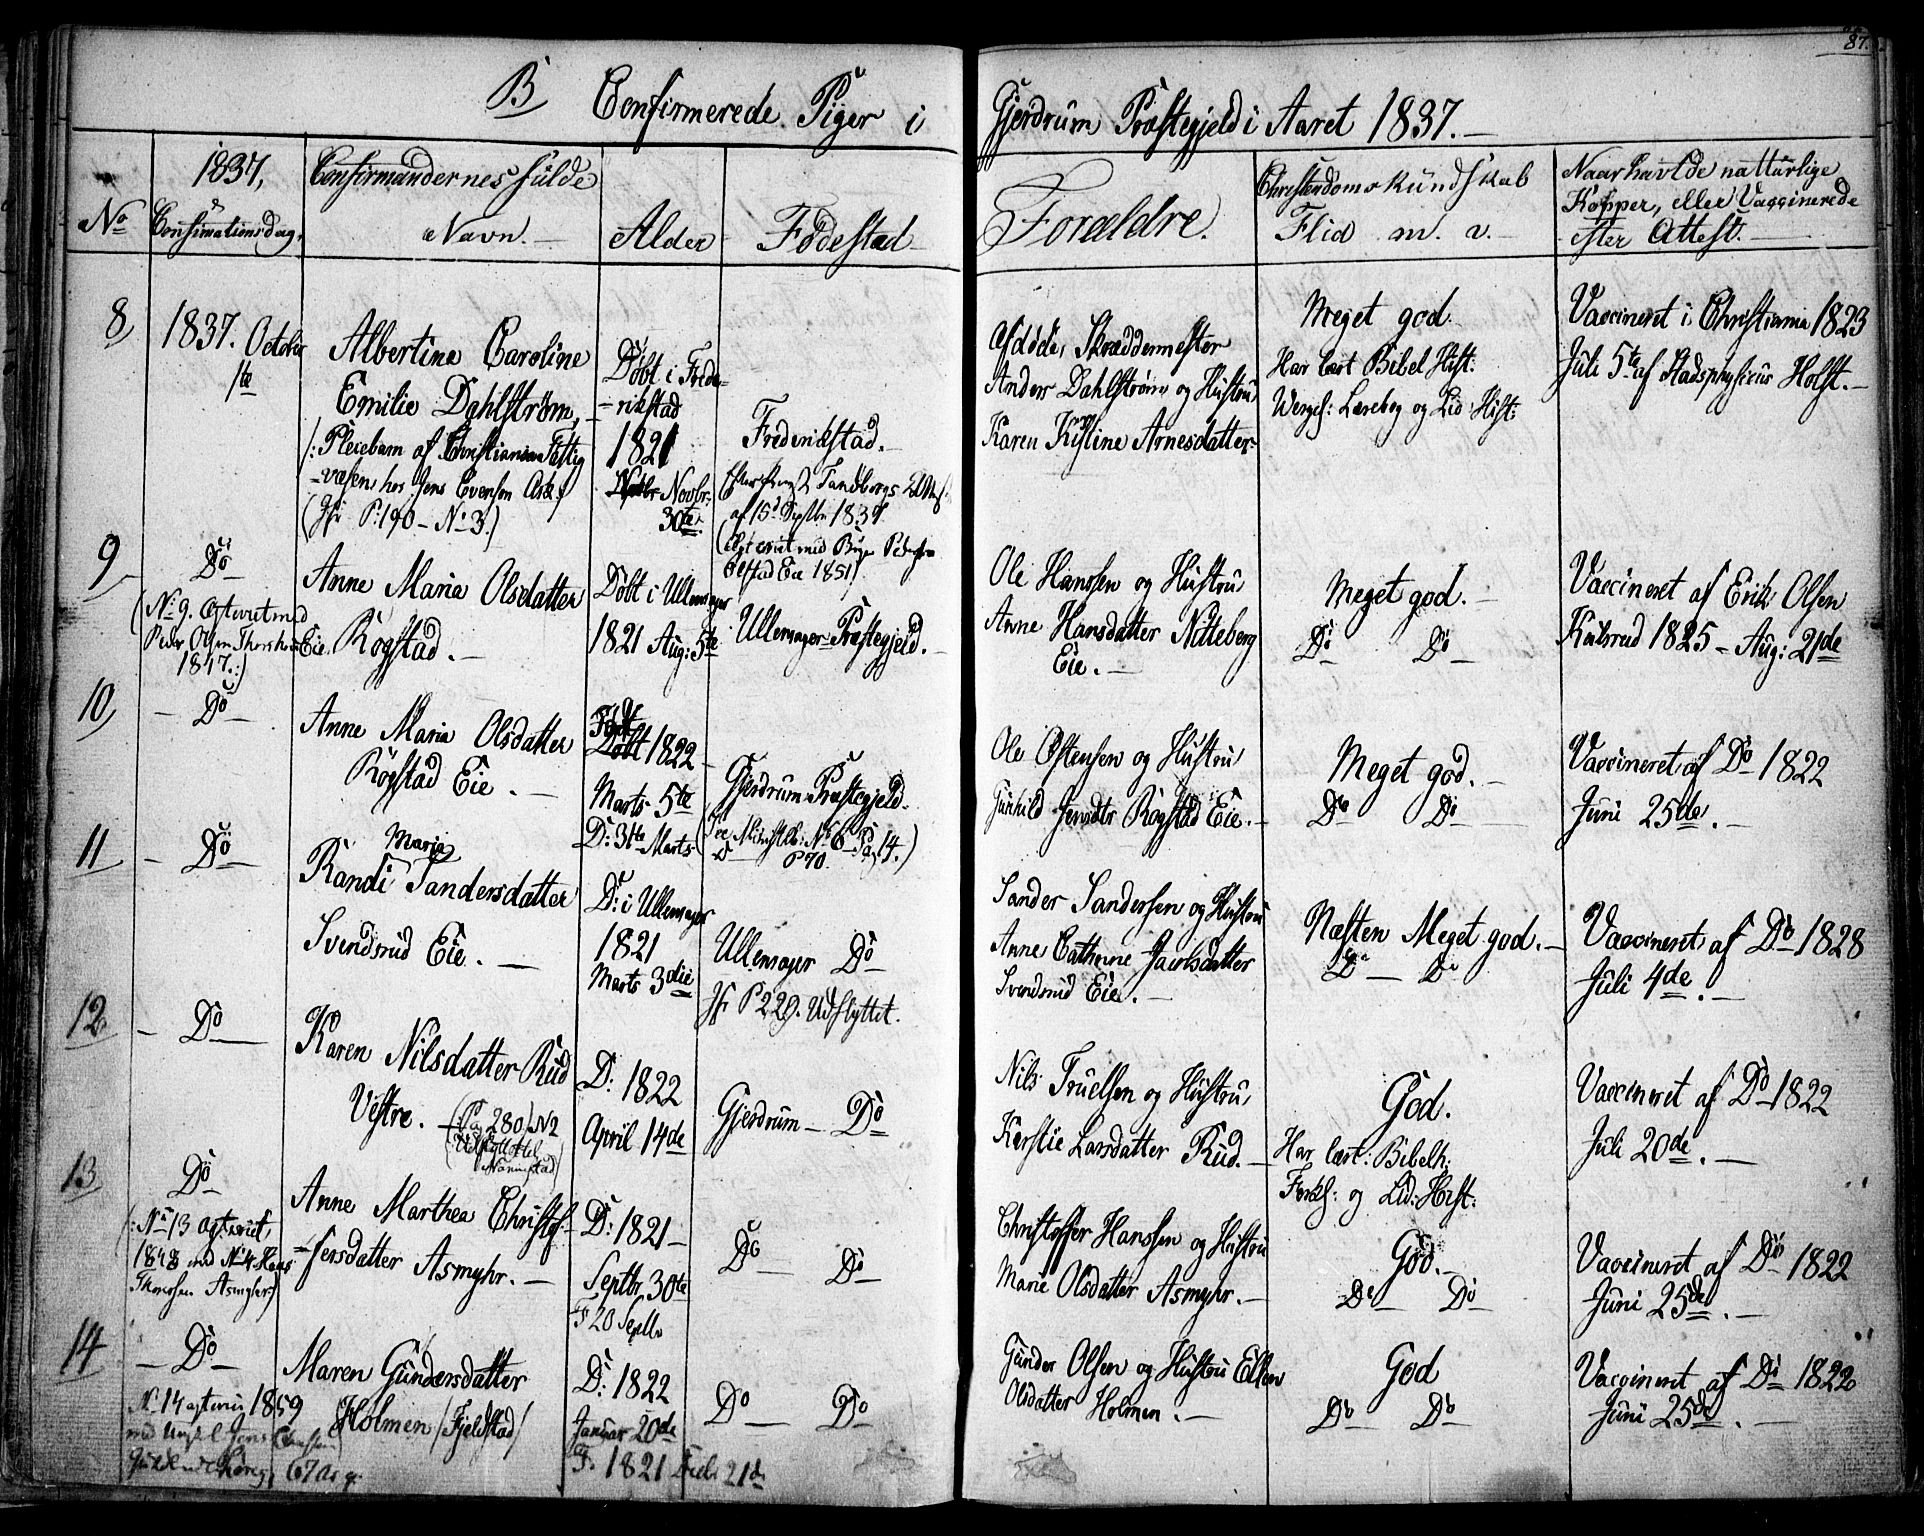 87.
B Confirmerede Piger i Gjerdrum Præstegjeld i Aaret 1837.-
No
1837,
Confirmationsdag.
Confirmandernes fulde
Navn.-
Alder
Fødestad
Forældre.
Christendomskundskab
Flid m. v.
Naar havte natturlige
Kopper, eller Vaccinerede
efter Attest.
8,
1837. October
1te
Albertine Caroline
Emilie Dahlstrøm,
/: Pleiebarn af Christiania Fattig
-væsen, hos Jens Evensen Ask/
(Jfr P: 190 - No 3.)
Døbt i Frede-
-rikstad
1821
Novbr:
30te
Frederikstad.
af 15d Septbr 1837
Ølstad Eie 1851)
Afdøde, Skræddermester
Anders Dahlstrøm og Hustru
Karen Kirstine Arnesdatter
Meget god.
Har lært Bibel Hist:
Wergel: Lærebog og Lid: Hist:
Vaccineret i Christiania 1823
Juli 5te af Stadsphysicus Holst.-
9
Do
(No 9. Ægteviet med
Peder Olsen Thorshoug Eie
1847.:)
Anne Maria Olsdatter
Rogstad.-
Døbt i Ullensager
1821 Aug: 5te
Ullensager Præstegjeld.-
Ole Hanssen og Hustru
Anne Hansdatter Nitteberg
Eie.-
Meget god.-
Do Do
Vaccineret af Erik Olsen
Kulsrud 1825 - Aug: 21de
10,
- Do -
Anne Maria Olsdatter
Rogstad Eie.-
Født
Døbt 1822
Marts 5te
D: 31te Marts
Gjerdrum Præstegjeld.
(See Ministlb: No 6 Pag 14.)
D P 70.
Ole Østensen og Hustru
Gunhild Jensdtr Rogstad Eie.-
Meget god.-
Do Do
Vaccineret af Do 1822
Juni 25de.-
11
- Do
Maria
Randi Sandersdatter
Svendsrud Eie.-
D: i Ullensager
1821
Marts 3die
Ullensager Do
Jfr P 229. Udflyttet.
Sander Sandersen og Hustru
Anne Cathrine Jacobsdatter
Svendsrud Eie.-
Næsten Meget god.-
Do Do
Vaccineret af Do 1828
Juli 4de.-
12
- Do
Karen Nilsdatter Rud
Vestre.-
(Pag 280, No 2
Udflyttet til
Nannestad)
D: 1822
April 14de
Gjerdrum - Do
Nils Truelsen og Hustru
Kirstie Larsdatter Rud.-
God.
Har lært: Bibelh:
Forkl: og Lid: Hist:
Vaccineret af Do 1822
Juli 20de.-
13
Do
(: No 13 ægteviet,
1848 med No 4 Hans
Thoresen Asmyhr)
Anne Marthea Christof-
-fersdatter Asmyhr.-
D: 1821-
Septbr. 30te
F 20 Septbr
Do Do
Christoffer Hanssen og Hustru
Marie Olsdatter Asmyhr.-
God.-
Do Do
Vaccineret af Do 1822
Juni 25de.-
14
- Do -
No 14 ægteviet 1859
med Ungkl Jens
Maren Gundersdatter
Holmen /Fjeldstad/
D: 1822
Januar 20de
F. 1821 Decbr 21de
Do Do
Gunder Olsen og Hustru Ellen
Olsdatter Holmen.-
God
Do Do
Vaccineret af Do 1822
Juni 25de.-